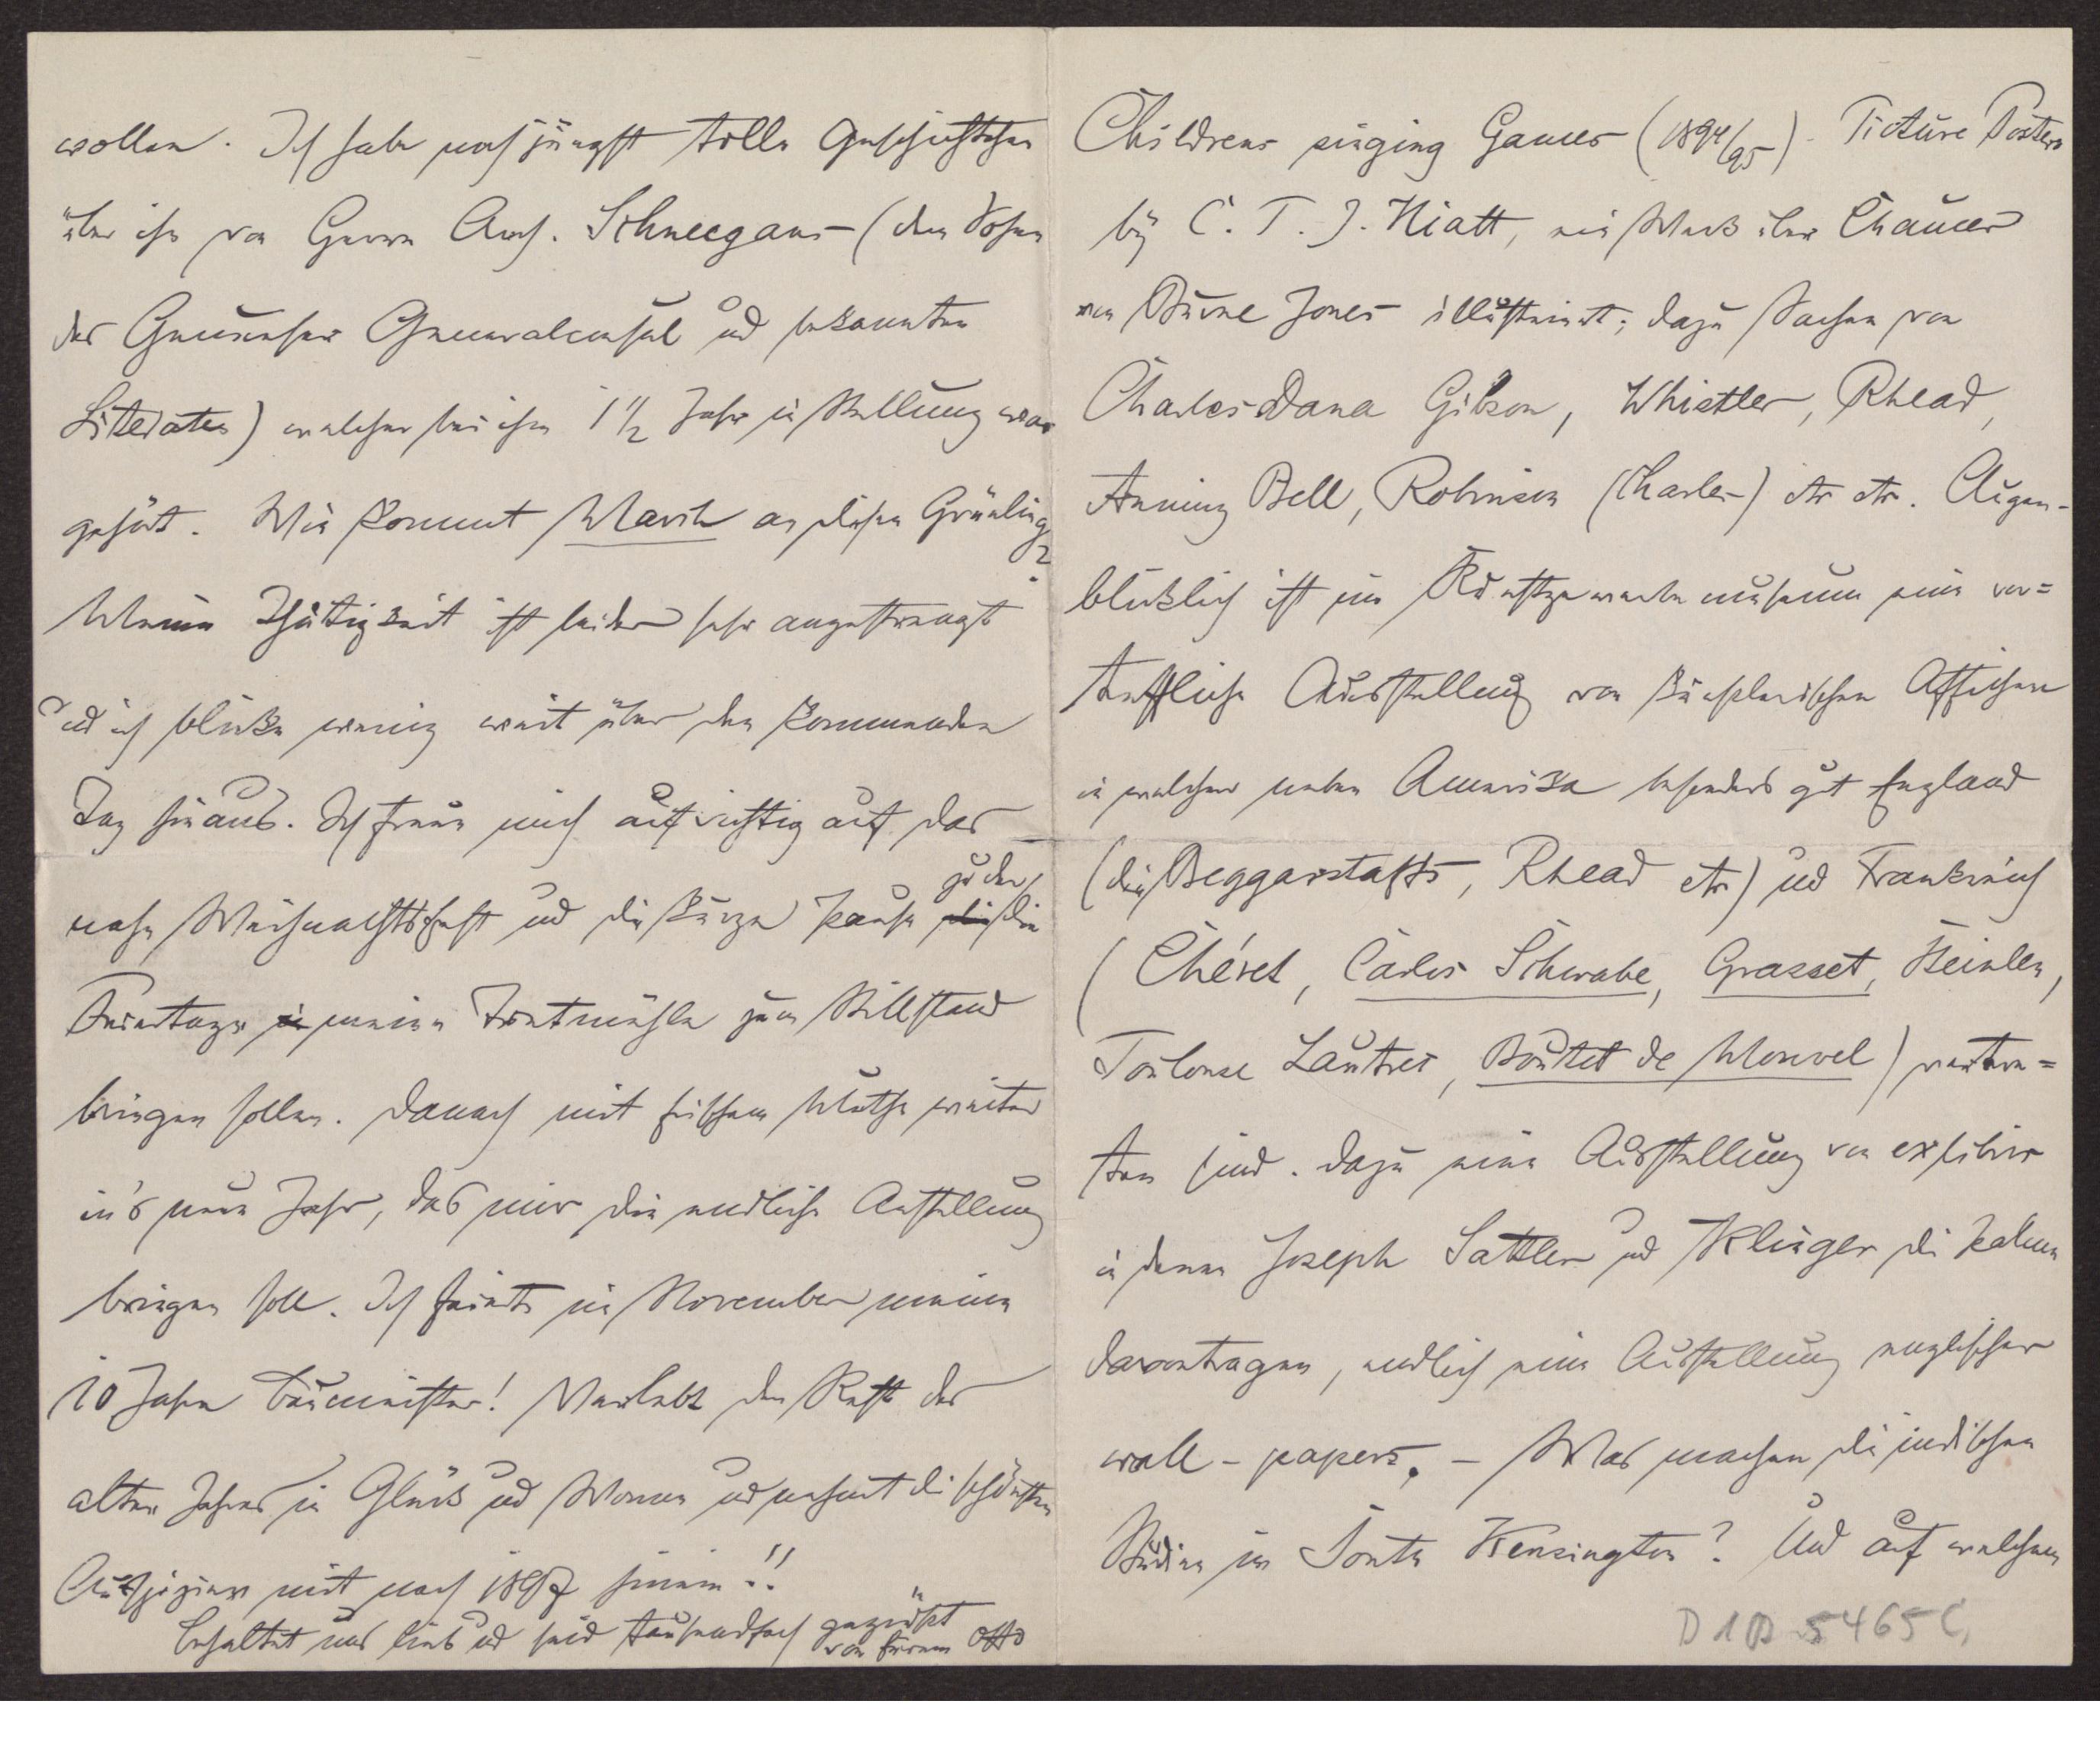 wollen. Ich habe noch jüngst tolle Geschichtchen
über ihn von Herrn Arch. Schneegans (dem Sohn
des Genueser Generalconsul und bekannten
Literaten) welcher bei ihm 1 1/2 Jahr in Stellung war
gehört. Wie kommt March an diesen Gründling?
Meine Thätigkeit ist leider sehr angestrengt
und ich blicke wenig weit über den kommenden
Tag hinaus. Ich freue mich aufrichtig auf das
nahe Weihnachtsfest und die kurze Pause zu der die
Feiertage meine Tretmühle zum Stillstand
bringen sollen. Danach mit frischem Muthe weiter
in's neue Jahr, das mir die endliche Anstellung
bringen soll. Ich feierte im November meine
10 Jahre Baumeister! Verlebt den Rest des
alten Jahres in Glück und Wonne und nehmt die schönsten
Auspizien mit nach 1897 hinein!!
Behaltet uns lieb und seid tausendfach gegrüßt
von Eurem Otto
Childrens singing Games (1894/95) - Picture Posters
by C. T. J. Hiatt, ein Werk über Chaucer
von Burne Jones illustriert; dazu Sachen von
Charles Dana Gibson, Whistler, Rhead,
Anning Bell, Robinson (Charles) etc etc. Augen-
blicklich ist im Kunstgewerbemuseum eine vor=
treffliche Ausstellung von künstlerischen Affichen
in welcher neben Amerika besonders gut England
(die Beggarstaffs, Rhead etc) und Frankreich
(Chéret, Carlos Schwabe, Grasset, Steinlen,
Toulouse Lautrec, Boutet de Monvel) vertre=
ten sind. Dazu eine Ausstellung von exlibris
in denen Joseph Sattler und Klinger die Palme
davontragen, endlich eine Ausstellung englischer
wall-papers. - Was machen die indischen
Studien im South Kensington? Und auf welchem
D 1 B 5465 C,